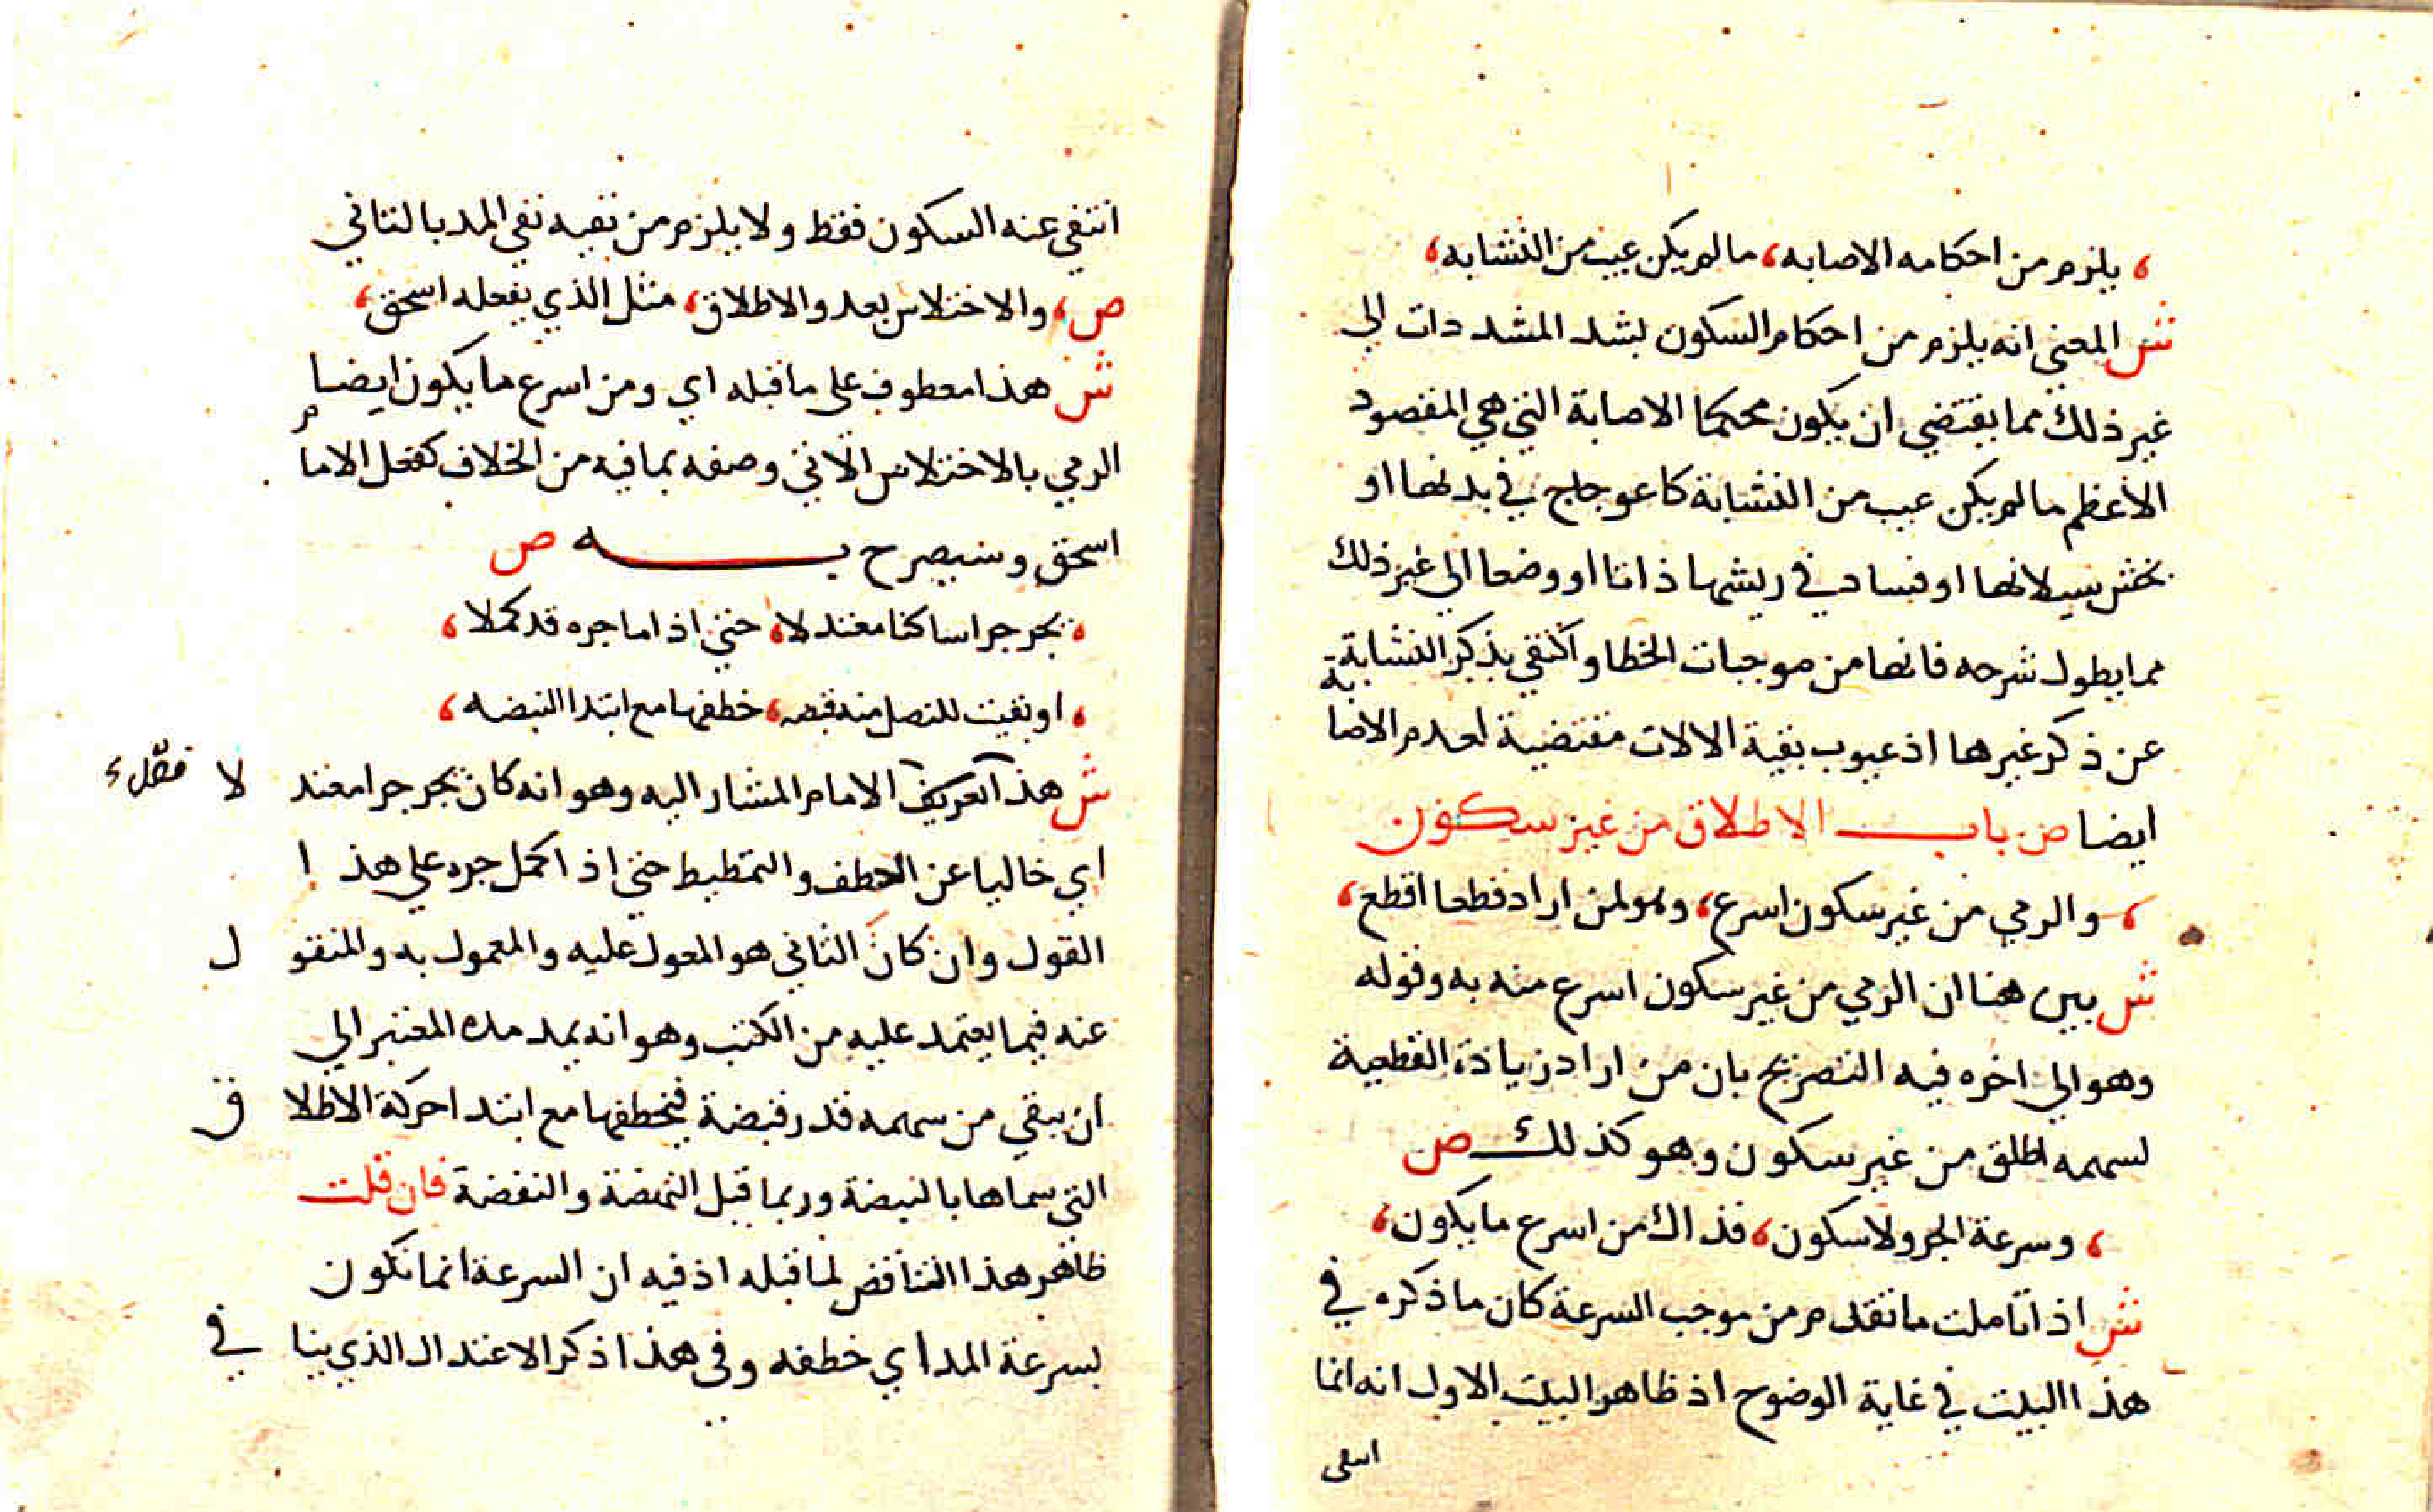 ، يلزم من احكامه الاصابه، مالم يكن عيب من النشابه،
ش المعني انه يلزم من احكام السكون بشد المشددات الي
غير ذلك مما يقتضي ان يكون محكما الاصابة التي هي المقصود
الاعظم مالم يكن عيب من النشابة كاعوجاج في بدنها او
سيلانها او فساد في ريشها ذاتا او وضعا الي غير ذلك
مما يطول شرحه فانها من موجبات الخطا واكتفي بذكر النشابة
عن ذكر غيرها اذ عيوب بقية الالات مقتضية لعدم الاصابة
ايضا ص باب الاطلاق من غير سكون
، والرمي من غير سكون اسرع، وهو لمن اراد قطعا اقطع،
ش بين هنا ان الرمي من غير سكون اسرع منه به وقوله
وهو الي اخره فيه التصريح بان من اراد زيادة القطعية
لسهمه اطلق من غير سكون وهو كذلك ص
، وسرعة الجر ولا سكون، فذاك من اسرع ما يكون،
ش اذا تاملت ما تقدم من موجب السرعة كان ما ذكره في
هذا البيت في غاية الوضوح اذ ظاهر البيت الاول انه انما
انتفي
انتفي عنه السكون فقط ولا يلزم من نفيه نفي المد بالتاني
ص، والاختلاس بعد والاطلاق، مثل الذي يفعله اسحق،
ش هذا معطوف علي ما قبله اي ومن اسرع ما يكون ايضا
الرمي بالاختلاس الاتي وصفه بما فيه من الخلاف كفعل الامام
اسحق وسيصرح به ص
، يجر جرا ساكنا معتدلا، حتي اذا ما جره قد كملا،
، او بقيت للنصل منه قبضه، خطفها مع ابتدا النبضه،
ش هذا تعريف الامام المشار اليه وهو انه كان يجر جرا معتد لا
اي خاليا عن الخطف والتمطيط حتي اذا كمل جره علي هذا
القول وان كان الثاني هو المعول عليه والمعمول به والمنقو ل
عنه فيما يعتمد عليه من الكتب وهو انه يمد مده المعتبر الي
ان يبقي من سهمه قدر قبضة فيخطفها مع ابتدا حركة الاطلا ق
التي سماها بالنبضة وربما قيل النهضة والنفضة فان قلت
ظاهر هذا التناقض لما قبله اذ فيه ان السرعة انما تكون
بسرعة المد اي خطفه وفي هذا ذكر الاعتدال الذي ينا في